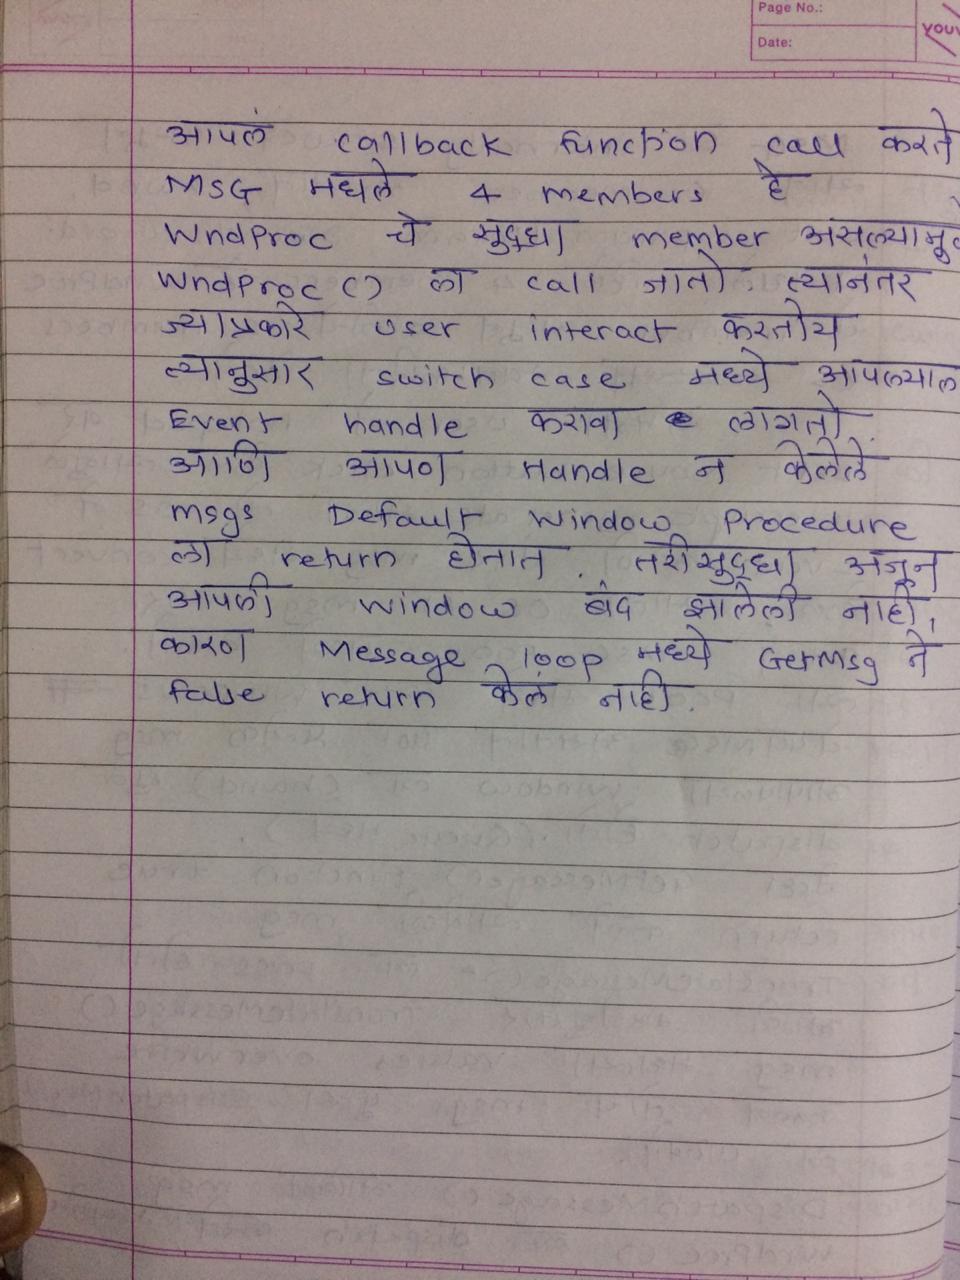 Page No.:
Date:
आपलं callback function call करते
MSG मधले 4 members हे
WndProc चे सुद्धा member
WndProc () ला call जातो. त्यानंतर
ज्याप्रकारे user interact करतोय
त्यानुसार switch case मध्ये
Event handle करावा लागतो.
आणि आपण Handle न केलेले
msgs Default Window Procedure
ला return होतात. तरीसुद्धा अजून
आपली window बंद झालेली नाही,
कारण Message loop मध्ये GetMsg ने
false return केलं नाही.